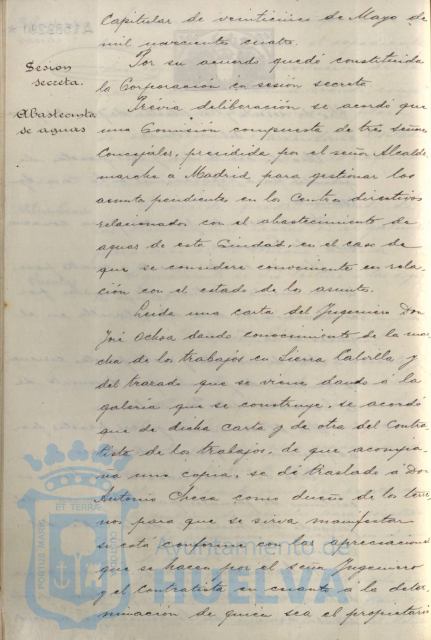 Capitular de veinticinco de Mayo de
mil novecientos cuatro.
Sesion
secreta.
Por su acuerdo quedó constituida
la Corporación en sesión secreta.
Abastecimto
de aguas
Prévia deliberación se acordó que
una Comisión compuesta de tres señores
Concejales, presidida por el señor Alcalde
marche á Madrid para gestionar los
asuntos pendientes en los Centros directivos
relacionados con el abastecimiento de
aguas de esta Ciudad, en el caso de
que se considere conveniente en rela-
ción con el estado de los asuntos.
Leida una carta del Ingeniero Don
José Ochoa dando conocimiento de la mar-
cha de los trabajos en Sierra Calvilla y
del trazado que se viene dando á la
galería que se construye, se acordó
que de dicha carta y de otra del Contra-
tista de los trabajos, de que acompa-
ña una copia, se dé traslado á Don
Antonio Checa como dueño de los terre-
nos para que se sirva manifestar
si está conforme con las apreciaciones
que se hacen por el señor Ingeniero
y el Contratista en cuanto á la deter-
minación de quien sea el propietario
ET TERRÆ
PORTUS MARIS
CUSTODIA
Ayuntamiento de
HUELVA